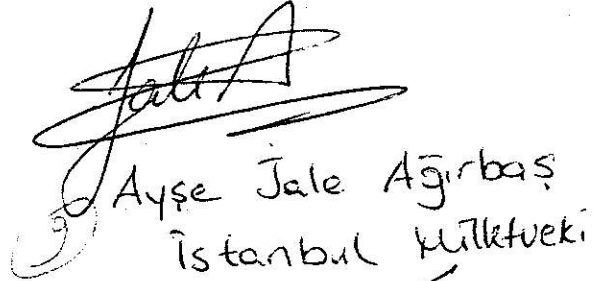 Jale A
Ayşe Jale Ağırbaş
İstanbul Milletveki